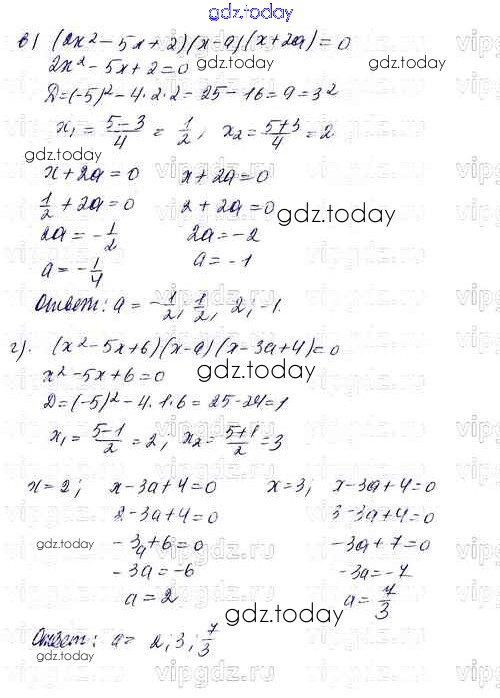 gdz.today
в) (2x² - 5x + 2)(x - a)(x + 2a) = 0
2x² - 5x + 2 = 0
Д = (-5)² - 4·2·2 = 25 - 16 = 9 = 3²
x₁ = (5-3)/4 = 1/2, x₂ = (5+3)/4 = 2
x + 2a = 0 x + 2a = 0
1/2 + 2a = 0 2 + 2a = 0
2a = -1/2 2a = -2
a = -1/4 a = -1
Ответ: a = -1/2, 1/2, 2; -1.
г). (x² - 5x + 6)(x - a)(x - 3a + 4) = 0
x² - 5x + 6 = 0
Д = (-5)² - 4·1·6 = 25 - 24 = 1
x₁ = (5-1)/2 = 2, x₂ = (5+1)/2 = 3
x = 2; x - 3a + 4 = 0 x = 3; x - 3a + 4 = 0
2 - 3a + 4 = 0 3 - 3a + 4 = 0
-3a + 6 = 0 -3a + 7 = 0
-3a = -6 -3a = -7
a = 2 a = 7/3
Ответ: a = 2; 3; 7/3
gdz.today
gdz.today
gdz.today
gdz.today
gdz.today
gdz.today
gdz.today
vipgdz.ru